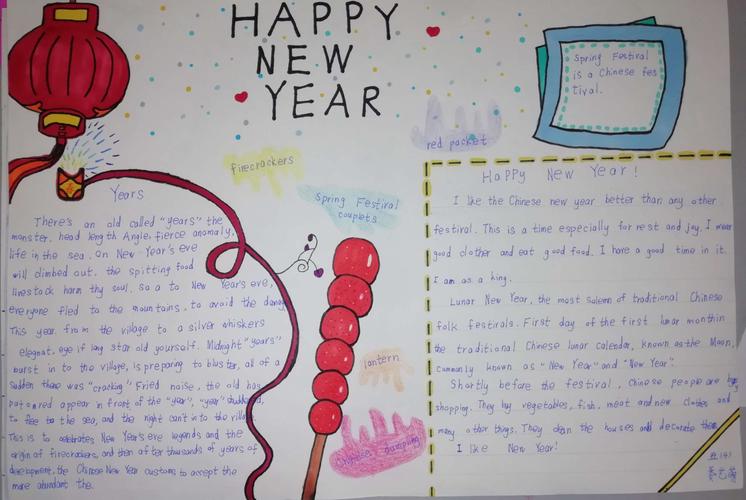 HAPPY
NEW
YEAR
Spring Festival
is a Chinese fes
tival.
red packet
firecrackers
Spring Festival
couplets
lantern
Chinese dumpling
Years
There's an old called "years" the
monster, head length Angle, fierce anomaly,
life in the sea. On New Year's eve
will climbed out. the spitting food
livestock harm thy soul. So a to New Year's eve,
everyone fled to the mountains, to avoid the
This year, from the village to a silver whiskers
elegant, eye if long star old yourself. Midnight "years"
burst in to the village, is preparing to bluster, all of a
sudden there was "cracking" Fried noise, the old has
put on red appear in front of the "year", "year"
to flee to the sea, and the night can't into the
This is to celebrates New Year's eve legends and the
origin of firecrackers, and then after thousands of years of
development, the Chinese New Year customs to accept the
more abundant the.
Happy New Year!
I like the Chinese new year better than any other
festival. This is a time especially for rest and joy. I wear
good clother and eat good food. I have a good time in it.
I am as a king.
Lunar New Year, the most solemn of traditional Chinese
folk festivals. First day of the first lunar monthin
the traditional Chinese lunar calendar, known as the Moon,
commonly known as "New Year" and "New Year".
Shortly before the festival, Chinese people are
shopping. They by vegetables, fish, meat and new clothes and
many other things. They clean the houses and decorate them
I like New Year!